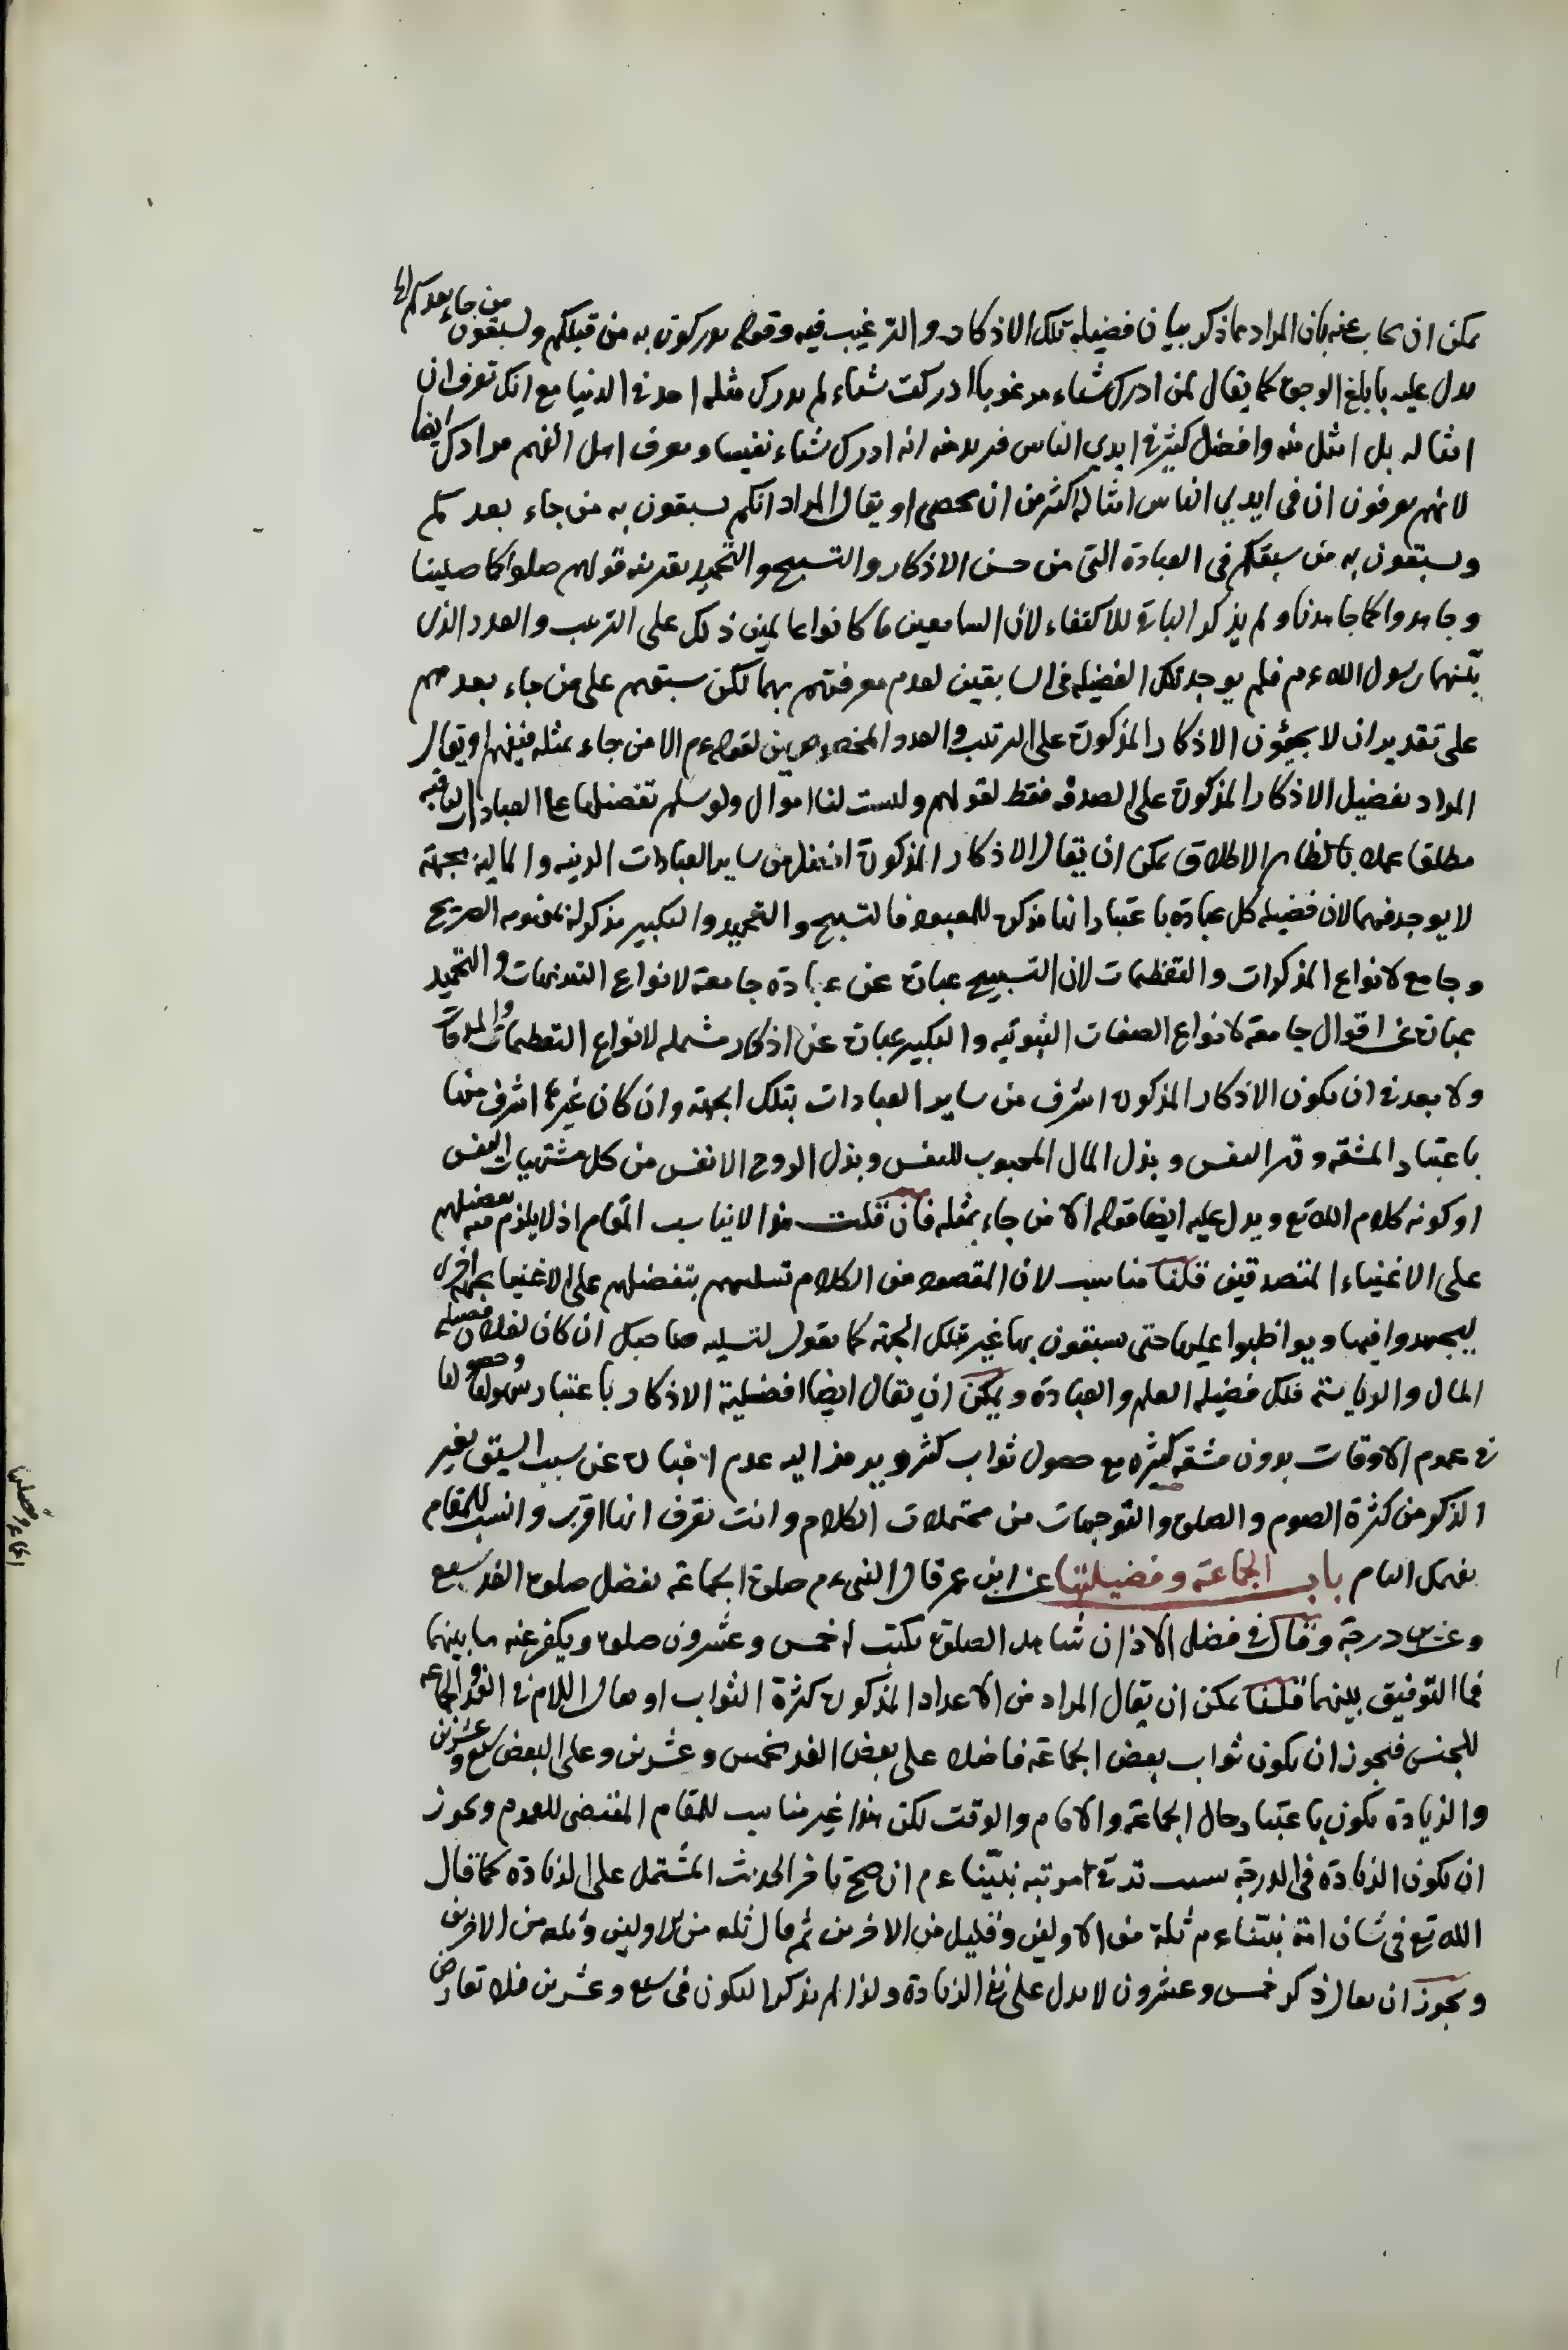 يمكن ان يجاب عنه بان المراد بما ذكر بيان فضيلة تلك الاذكار والترغيب فيه وقوله تدركون به من قبلكم وتسبقون من جاء بعدكم
يدل عليه بابلغ الوجوه كما يقال لمن ادرك شياء مرغوبا ادركت شياء لم يدرك مثله احد في الدنيا مع انك تعرف ان
امثاله بل امثل منه وافضل كثير في ايدي الناس فيريد منه انه ادرك شياء نفيسا ويعرف اهل الفهم مرادك ايضا
لانهم يعرفون ان في ايدي الناس امثاله اكثر من ان يحصى او يقال المراد انكم تسبقون به من جاء بعدكم
وتسبقون به من سبقكم في العبادة التي من حسن الاذكار والتسبيح والتحميد بقرينة قولهم صلوا كما صلينا
وجاهدوا كما جاهدنا ولم يذكر الباقي للاكتفاء لان السامعين ما كانوا عالمين ذلك على الترتيب والعدد الذى
بينهما رسول الله ءم فلم يوجد تلك الفضيلة في السابقين لعدم معرفتهم بهما لكن سبقهم على من جاء بعدهم
على تقدير ان لا يجيئون الاذكار المذكورة على الترتيب والعدد المخصوصين لقوله ءم الا من جاء بمثله فيفهم او يقال
المراد تفضيل الاذكار المذكورة على الصدقة فقط لقولهم وليست لنا اموال ولو سلم تفضيلها على العبادات الباقية
مطلقا عملا بالظاهر الاطلاق يمكن ان يقال الاذكار المذكورة افضل من ساير العبادات البدنية والمالية بجهة
لا يوجد فيهما لان فضيلة كل عبادة باعتبار انها مذكرة للمعبود فالتسبيح والتحميد والتكبير مذكر له بمفهومه الصريح
وجامع لانواع المذكرات والتعظيمات لان التسبيح عبارة عن عبادة جامعة لانواع التنزيهات والتحميد
عبارة عن اقوال جامعة لانواع الصفات الثبوتية والتكبير عبارة عن اذكار مشتملة لانواع التعظيمات
ولا بعد في ان يكون الاذكار المذكورة اشرف من ساير العبادات بتلك الجهة وان كان غيرها اشرف منها
باعتبار المشقة وقهر النفس وبذل المال المحبوب للنفس وبذل الروح الانفس من كل مشتهيات النفس
او كونه كلام الله تع ويدل عليه ايضا قوله الا من جاء بمثله فان قلت هذا لا يناسب المقام اذ لا يلزم منه تفضيلهم
على الاغنياء المتصدقين قلنا مناسب لان المقصود من الكلام تسليتهم بتفضيلهم على الاغنيا بجهة اخرى
ليجهدوا فيها ويواظبوا عليها حتى يسبقون بها غير تلك الجهة كما يقول لتسلية صاحبك ان كان لفلان فضيلة
المال والرياسة فلك فضيلة العلم والعبادة ويمكن ان يقال ايضا افضلية الاذكار باعتبار سهولتها وحصولها
في عموم الاوقات بدون مشقة كثيرة مع حصول ثواب كثير ويرد هذا اليه عدم اخباره عن سبب السبق بغير
الذكر من كثرة الصوم والصلوة والتوجهات من محتملات الكلام وانت تعرف انها اقرب وانسب للمقام
بفهمك التام باب الجماعة وفضيلتها عن ابن عمر قال النبي ءم صلوة الجماعة تفضل صلوة الفذ بسبع
وعشرين درجة وقال في فضل الاذان شاهد الصلوة يكتب له خمس وعشرون صلوة ويكفر عنه ما بينهما
فما التوفيق بينهما قلنا يمكن ان يقال المراد من الاعداد المذكورة كثرة الثواب او يقال اللام في الفذ والجماعة
للجنس فيجوز ان يكون ثواب بعض الجماعة فاضلا على بعض الفذ بخمس وعشرين وعلى البعض بسبع وعشرين
والزيادة يكون باعتبار حال الجماعة والامام والوقت لكن هذا غير مناسب للمقام المقتضى للعموم ويجوز
ان يكون الزيادة في الدرجة بسبب ترقي مرتبه نبينا ءم ان صح تاخر الحديث المشتمل على الزيادة كما قال
الله تع في شان امة نبينا ءم ثلة من الاولين وقليل من الاخرين ثم قال ثلة من الاولين وثلة من الاخرين
ويجوز ان يقال ذكر خمس وعشرون لا يدل على نفى الزيادة ولذا لم يذكرها ليكون في سبع وعشرين فلا تعارض